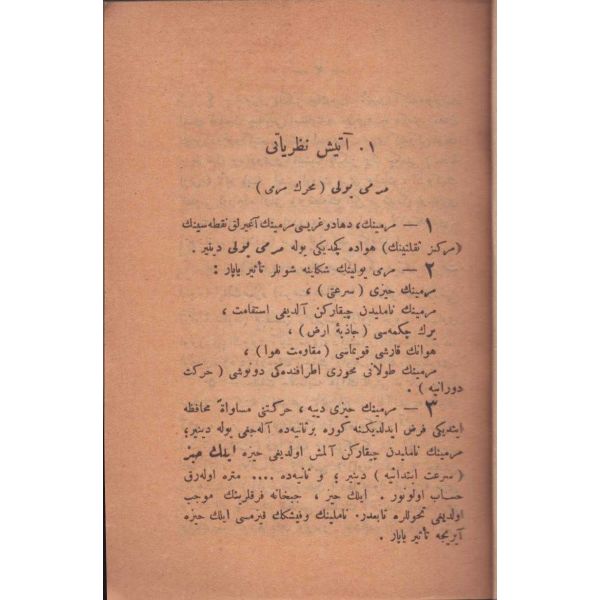 ۱. آتیش نظریاتی
مرمی یولی (محرك مرمی)
۱ — مرمینك، دها دوغریسی مرمینك آغیرلق نقطه سینك
(مركز ثقلتینك) هواده کچدیکی یوله مرمی یولی دینیر .
۲ — مرمی یولینك شکلنه شونلر تأثیر یاپار :
مرمینك حیزی (سرعتی) ،
مرمینك ناملیدن چیقارکن آلدیغی استقامت ،
یرك چکمه سی (جاذبهٔ ارض) ،
هوانك قارشی قویماسی (مقاومت هوا) ،
مرمینك طولانی محوری اطرافنده کی دونوشی (حرکت
دورانیه) .
۳ — مرمینك حیزی دییه ، حرکتنی مساواةً محافظه
ایتدیکی فرض ایدلدیکنه کوره بر ثانیه ده آله جغی یوله دینیر ؛
مرمینك ناملیدن چیقارکن آلمش اولدیغی حیزه ایلك حیز
(سرعت ابتدائیه) دینیر ؛ و ثانیه ده .... متره اوله رق
حساب اولونور . ایلك حیز ، جبخانه فرقلرینك موجب
اولدیغی تحوللره تابعدر. ناملینك و فیشنكك قیزمسی ایلك حیزه
آیریجه تأثیر یاپار .